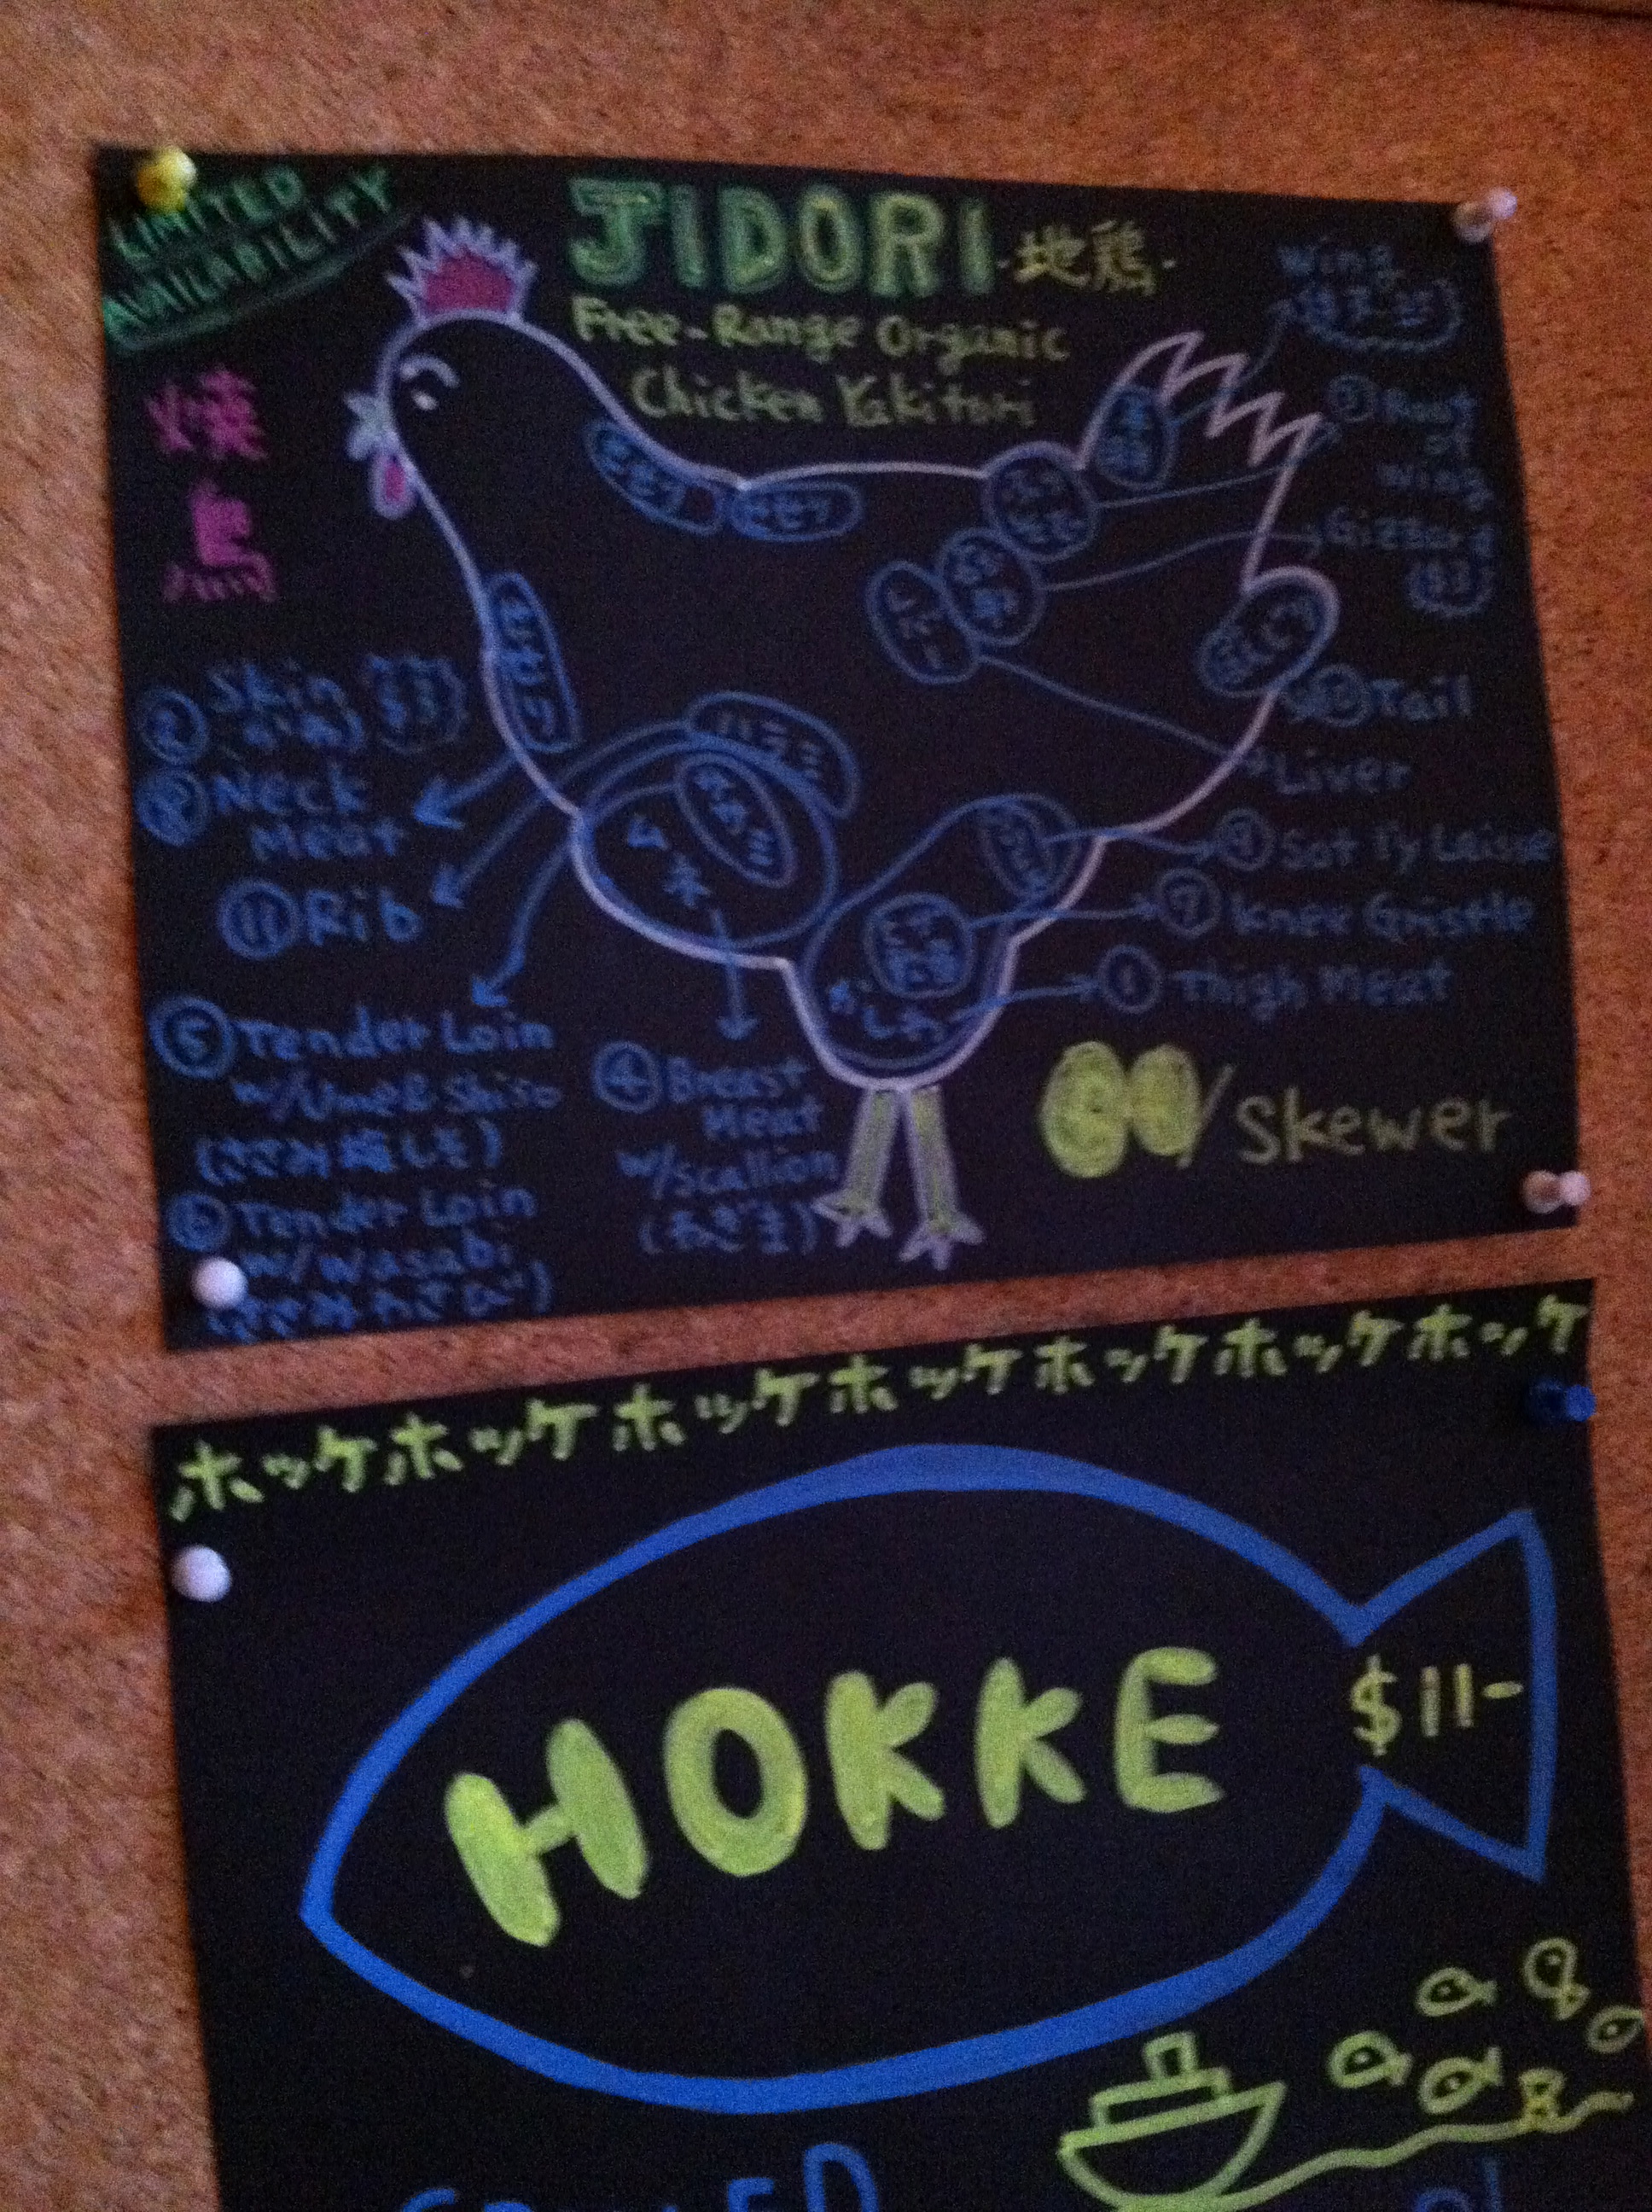 LIMITED
AVAILABILITY
JIDORI -地鶏-
Free-Range Organic
Chicken Yakitori
焼
鳥
Wing
Root
of
Wing
Gizzard
$3
Tail
Liver
Sot l'y Laisse
⑦ Knee Gristle
① Thigh Meat
/ Skewer
② Skin
$3
Neck
Meat
⑪ Rib
⑤ Tender Loin
w/Ume & Shiso
(ささみ梅しそ)
⑥ Tender Loin
w/Wasabi
ささみわさび)
④ Breast
Meat
w/scallion
(ねぎま)
セセリ
レバー
ハラミ
ササミ
ムネ
ホッケホッケホッケホッケホッケホッケホッケ
HOKKE
$11-